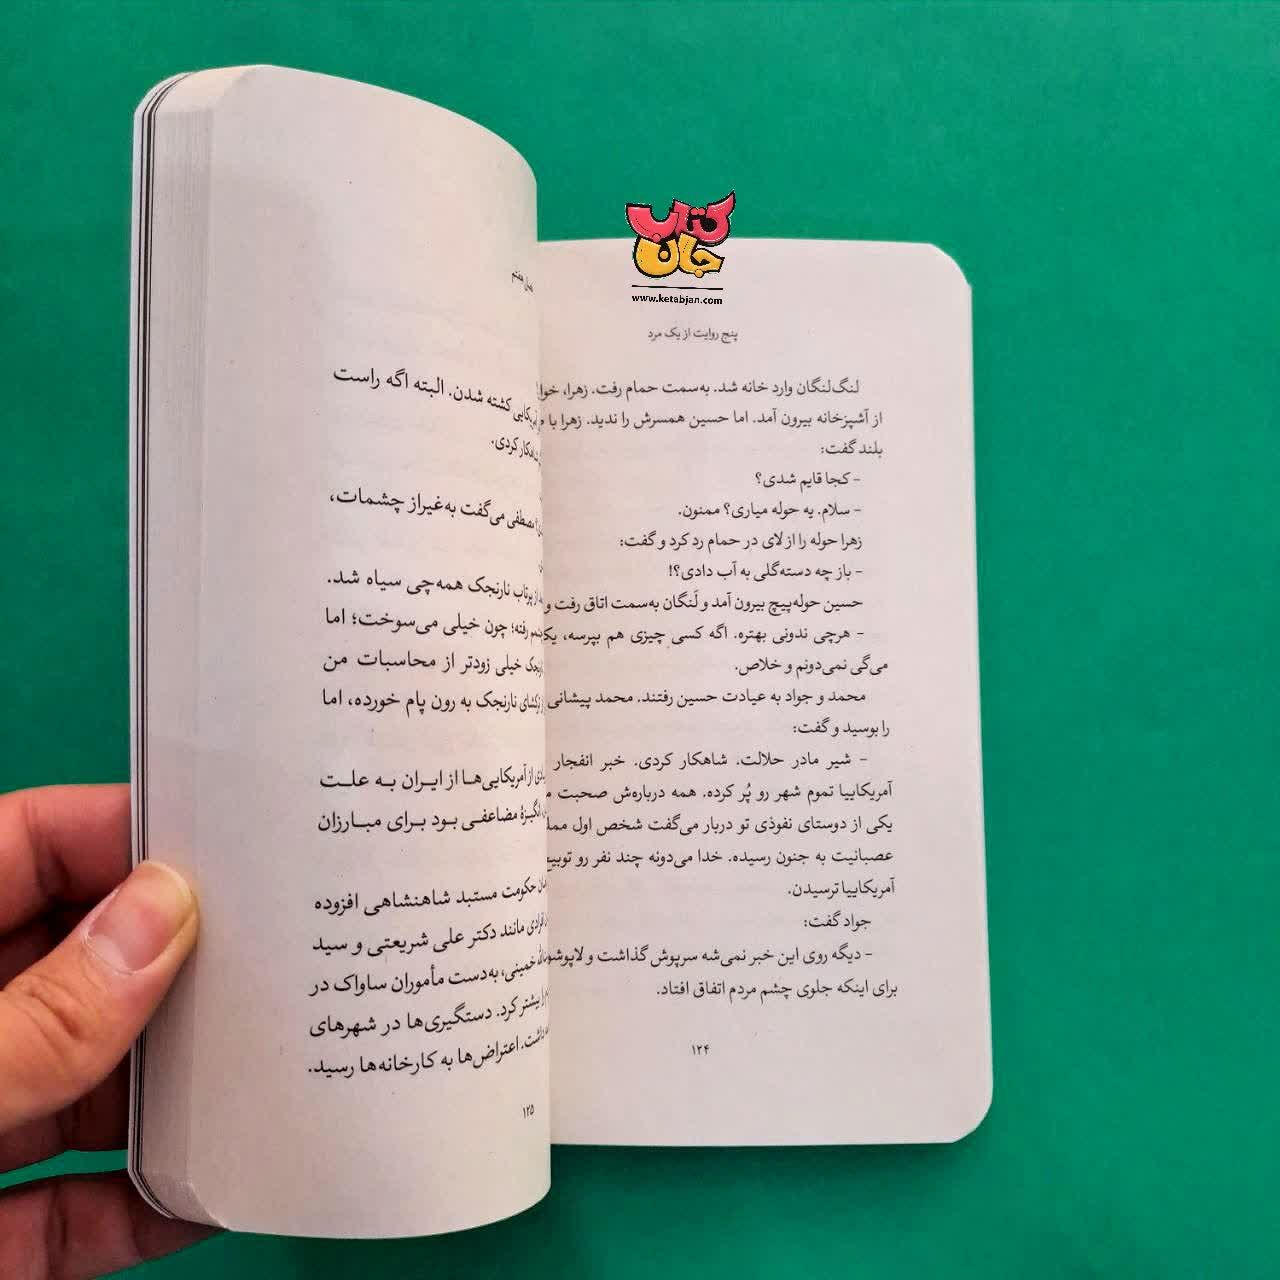 کتاب
جان
www.ketabjan.com
پنج روایت از یک مرد
لنگ‌لنگان وارد خانه شد. به‌سمت حمام رفت. زهرا،
از آشپزخانه بیرون آمد. اما حسین همسرش را ندید. زهرا با
بلند گفت:
- کجا قایم شدی؟
- سلام. یه حوله میاری؟ ممنون.
زهرا حوله را از لای در حمام رد کرد و گفت:
- باز چه دسته‌گلی به آب دادی؟!
حسین حوله‌پیچ بیرون آمد و لَنگان به‌سمت اتاق رفت و
- هرچی ندونی بهتره. اگه کسی چیزی هم بپرسه،
می‌گی نمی‌دونم و خلاص.
محمد و جواد به عیادت حسین رفتند. محمد پیشانی
را بوسید و گفت:
- شیر مادر حلالت. شاهکار کردی. خبر انفجار
آمریکاییا تموم شهر رو پُر کرده. همه درباره‌ش صحبت
یکی از دوستای نفوذی تو دربار می‌گفت شخص اول
عصبانیت به جنون رسیده. خدا می‌دونه چند نفر رو
آمریکاییا ترسیدن.
جواد گفت:
- دیگه روی این خبر نمی‌شه سرپوش گذاشت و
برای اینکه جلوی چشم مردم اتفاق افتاد.
۱۲۴
هفتم
کشته شدن. البته اگه راست
کردی.
مصطفی می‌گفت به‌غیراز چشمات،
از پرتاب نارنجک همه‌چی سیاه شد.
رفته؛ چون خیلی می‌سوخت؛ اما
خیلی زودتر از محاسبات من
نارنجک به رون پام خورده، اما
از آمریکایی‌ها از ایران به علت
مضاعفی بود برای مبارزان
حکومت مستبد شاهنشاهی افزوده
افرادی مانند دکتر علی شریعتی و سید
خمینی، به‌دست مأموران ساواک در
را بیشتر کرد. دستگیری‌ها در شهرهای
داشت. اعتراض‌ها به کارخانه‌ها رسید.
۱۲۵